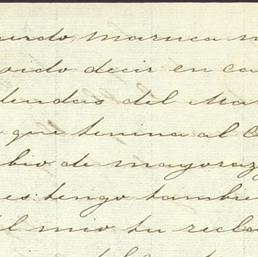 maruca
oido decir en ca
deudas del Mar
que tenina al C
bio de mayoraz
es tengo tambie
el mio tu recla